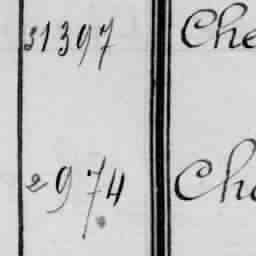 31397 Che
2974 Cha